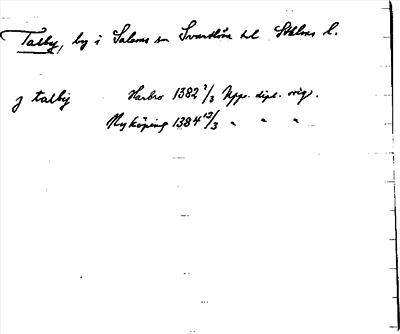 Talby, by i Salems sn Svartlösa hd Sthlms l.
j talbij Harbro 1382 7/3 Upps. dipl. orig.
Nyköping 1384 13/3 " " "